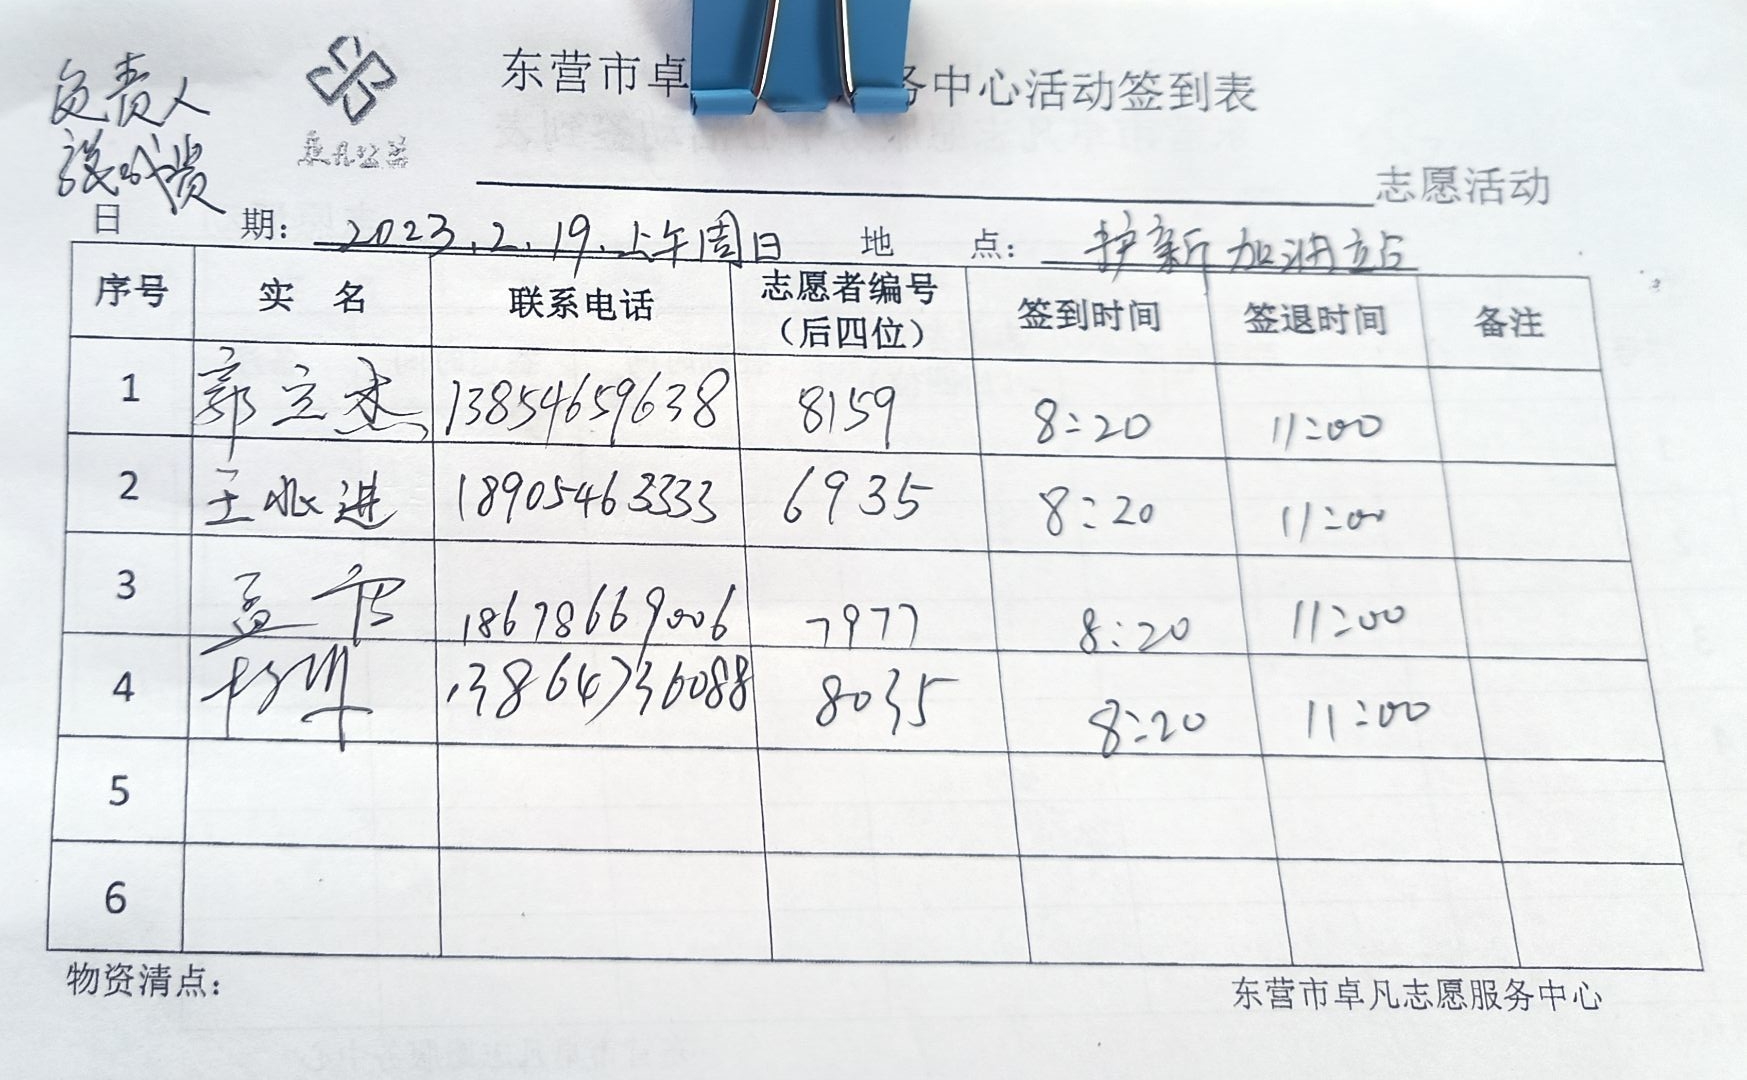 负责人
东营市卓 务中心活动签到表
卓凡公益
志愿活动
日 期: 2023.2.19.上午周日 地 点: 护新加油站
序号 实 名 联系电话 志愿者编号(后四位) 签到时间 签退时间 备注
1 郭立杰 13854659638 8159 8:20 11:00
2 王兆进 18905463333 6935 8:20 11:00
3 孟 18678669006 7977 8:20 11:00
4 13864736088 8035 8:20 11:00
5
6
物资清点:
东营市卓凡志愿服务中心